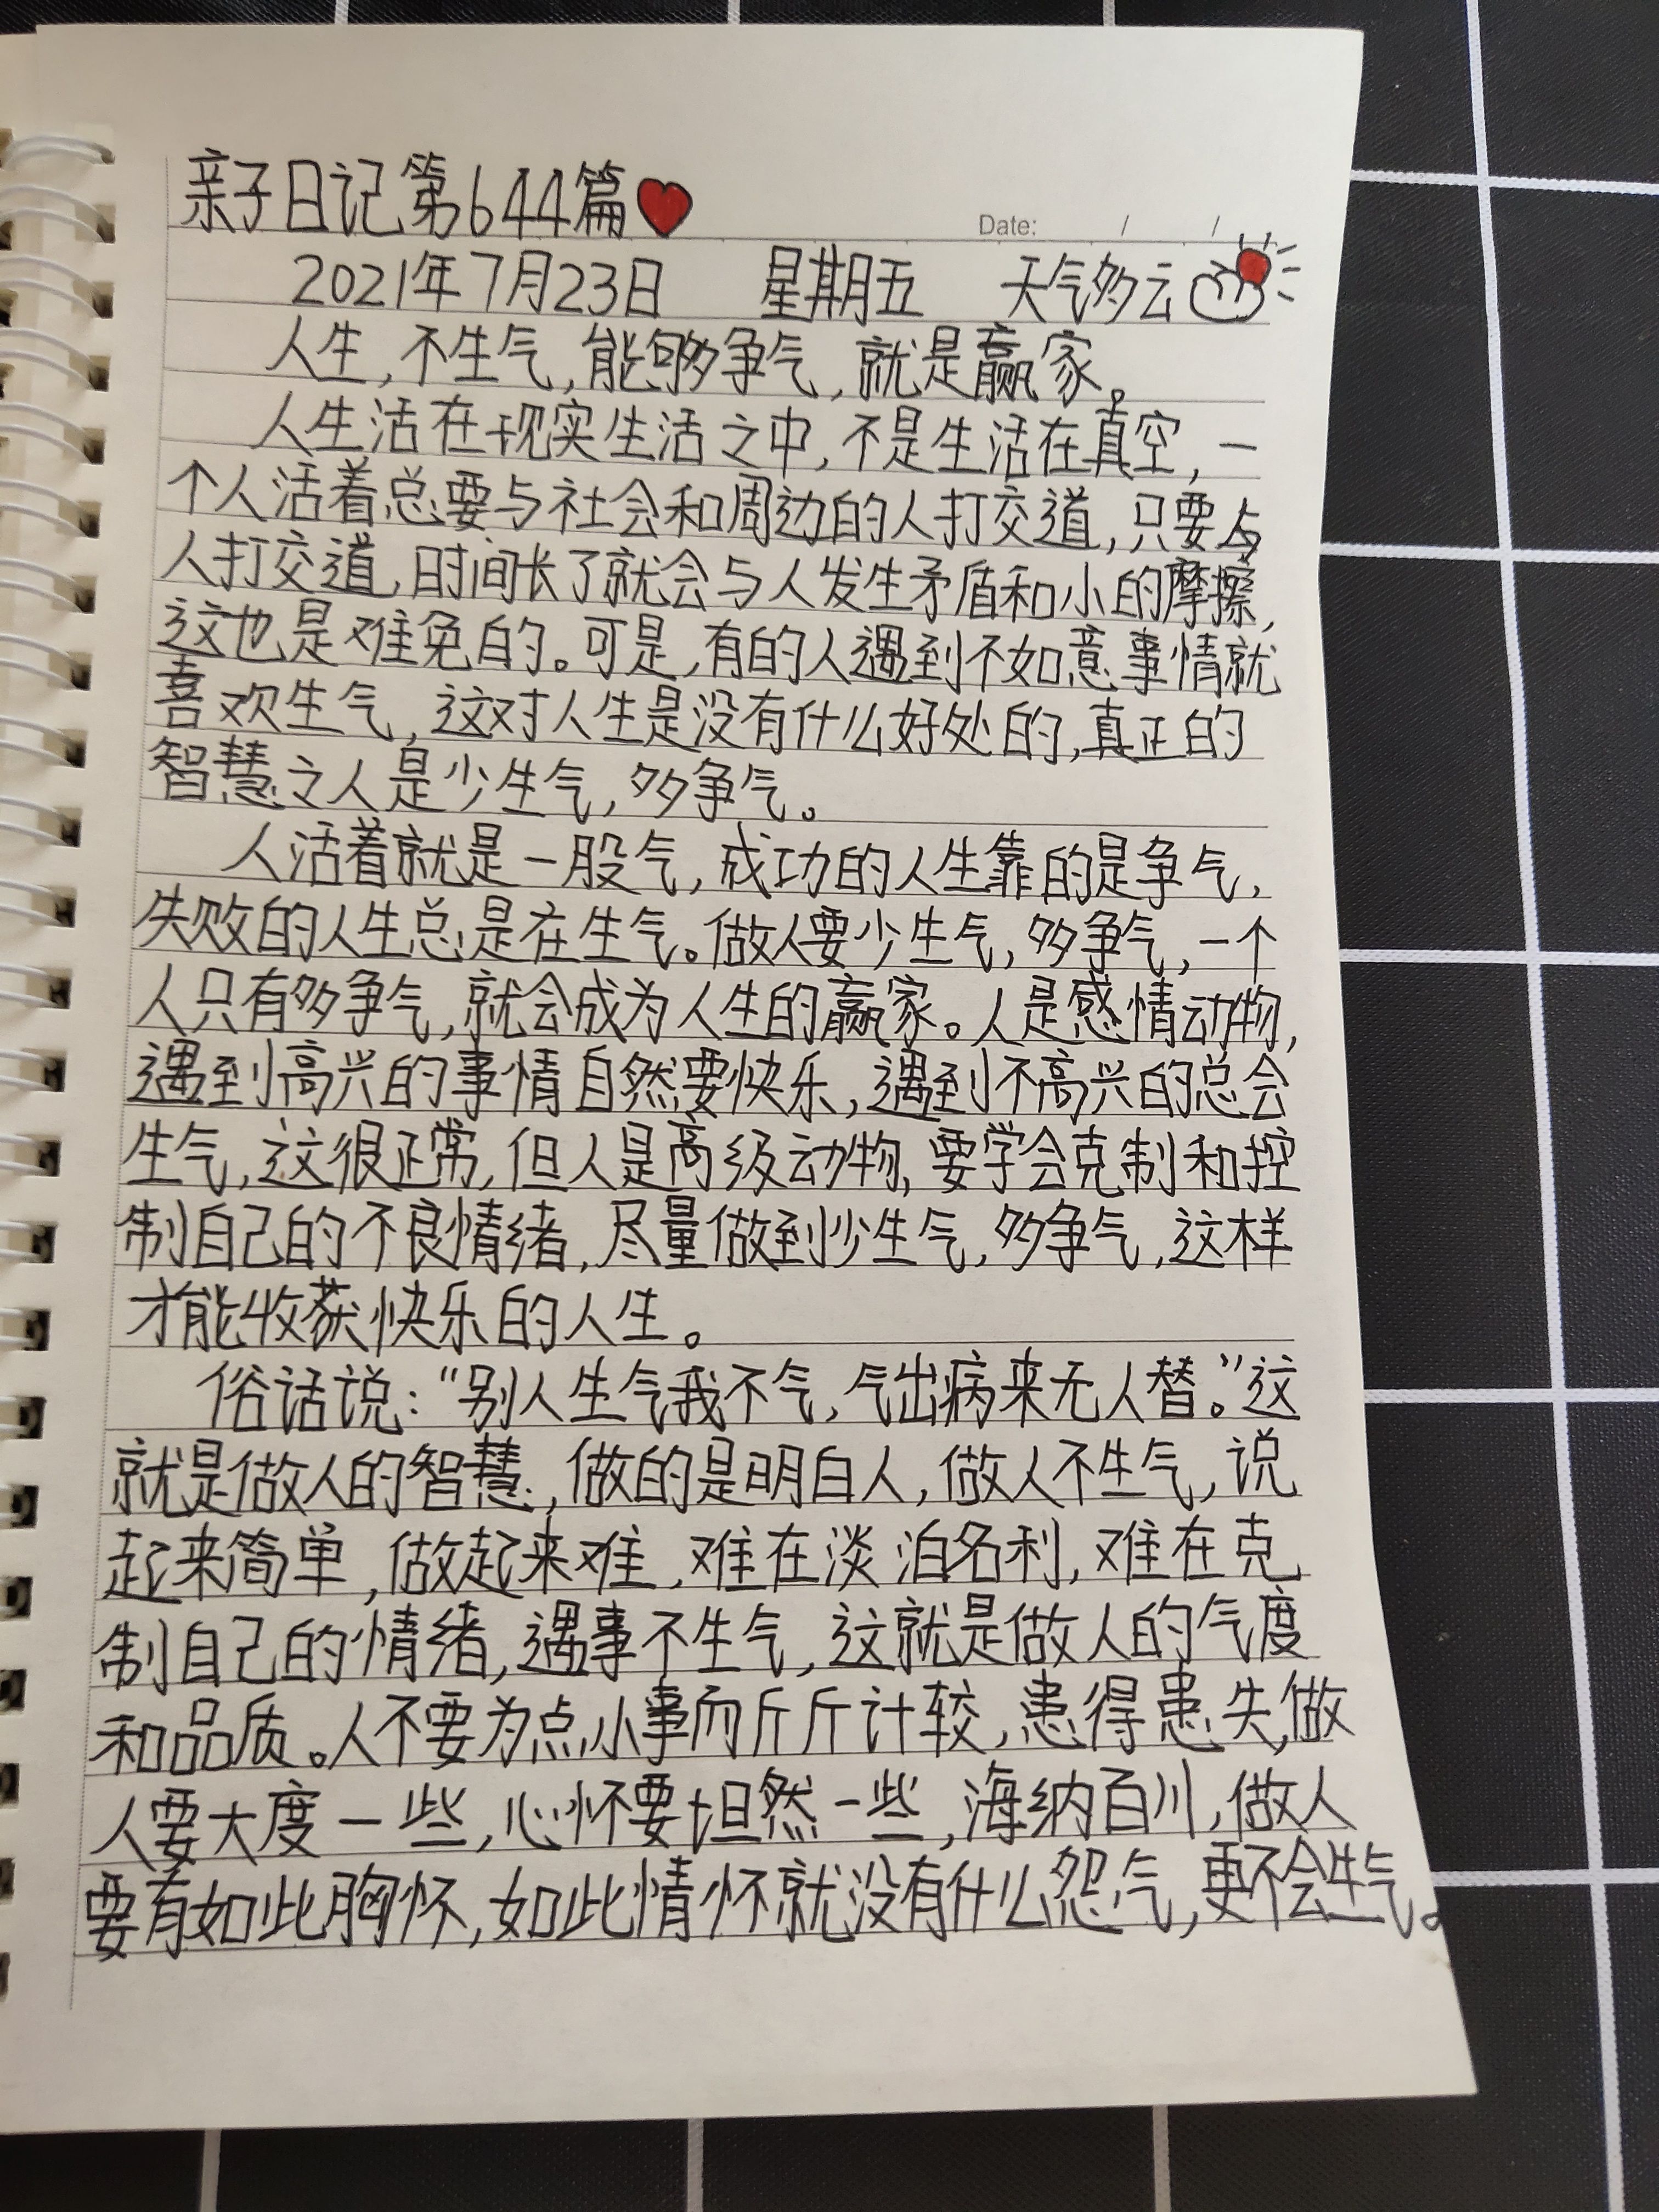 亲子日记第644篇
Date: / /
2021年7月23日 星期五 天气多云
人生,不生气,能够争气,就是赢家。
人生活在现实生活之中,不是生活在真空,一
个人活着总要与社会和周边的人打交道,只要与
人打交道,时间长了就会与人发生矛盾和小的摩擦,
这也是难免的。可是,有的人遇到不如意事情就
喜欢生气,这对人生是没有什么好处的,真正的
智慧之人是少生气,多争气。
人活着就是一股气,成功的人生靠的是争气,
失败的人生总是在生气。做人要少生气,多争气,一个
人只有多争气,就会成为人生的赢家。人是感情动物,
遇到高兴的事情自然要快乐,遇到不高兴的总会
生气,这很正常,但人是高级动物,要学会克制和控
制自己的不良情绪,尽量做到少生气,多争气,这样
才能收获快乐的人生。
俗话说:“别人生气我不气,气出病来无人替。”这
就是做人的智慧,做的是明白人,做人不生气,说
起来简单,做起来难,难在淡泊名利,难在克
制自己的情绪,遇事不生气,这就是做人的气度
和品质。人不要为点小事而斤斤计较,患得患失,做
人要大度一些,心怀要坦然一些,海纳百川,做人
要有如此胸怀,如此情怀就没有什么怨气,更不会生气。